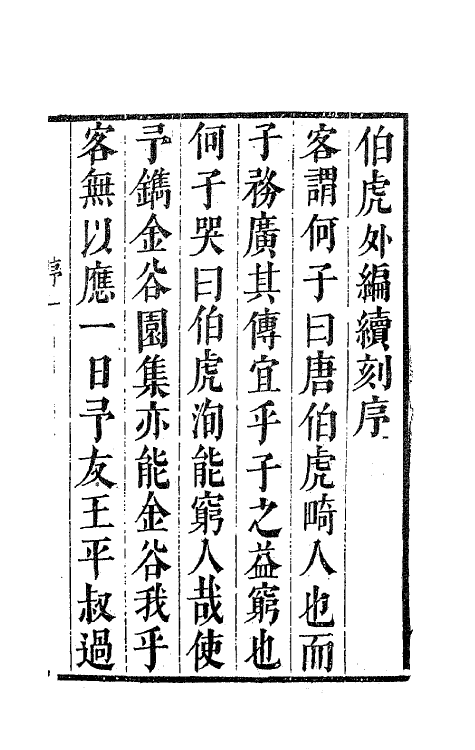 伯虎外編續刻序
客謂何子曰唐伯虎畸人也而
子務廣其傳宜乎子之益窮也
何子哭曰伯虎洵能窮人哉使
予鐫金谷園集亦能金谷我乎
客無以應一日予友王平叔過
序 一